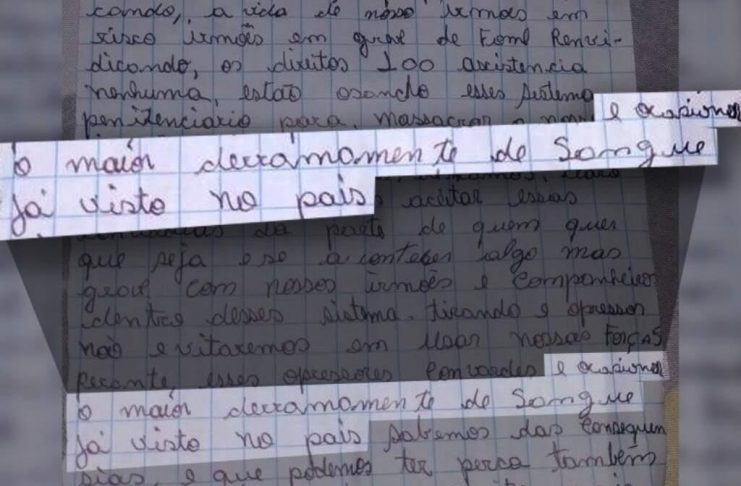 cando, a vida de nosso irmões em
risco irmões em greve de Fome Renvi-
dicando, os direitos 100 assistencia
nenhuma, estão osando esses sistema
penitenciario para, massacrar e ocasionar
o maior derramamente de Sangue
já visto no pais
aceitar essas
da parte de quem quer
que seja e se acontecer algo mas
grave com nossos irmões e companheiros
dentro desses sistema. tirando o opressor
não evitaremos em usar nossas FORÇAS
Perante, esses opressores Convardes e ocasionar
o maior derramamente de Sangue
já visto no pais sabemos das Consequen
sias, e que podemos ter perca também